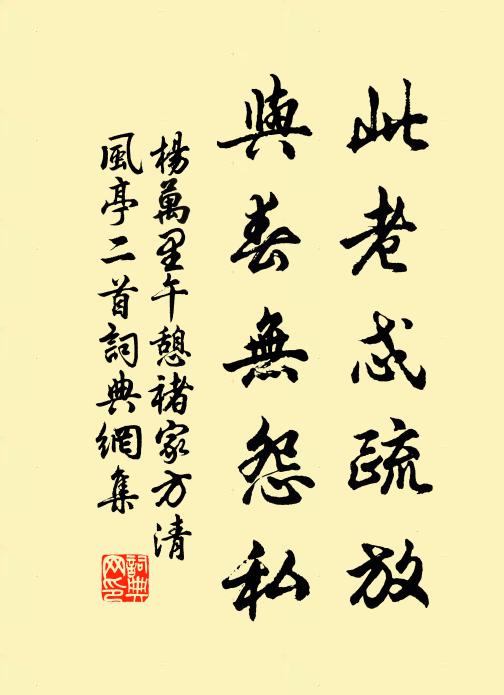 此老忒疏放
與春無怨私
楊萬里午憩褚家方清
風亭二首詞典網集
詞典網印